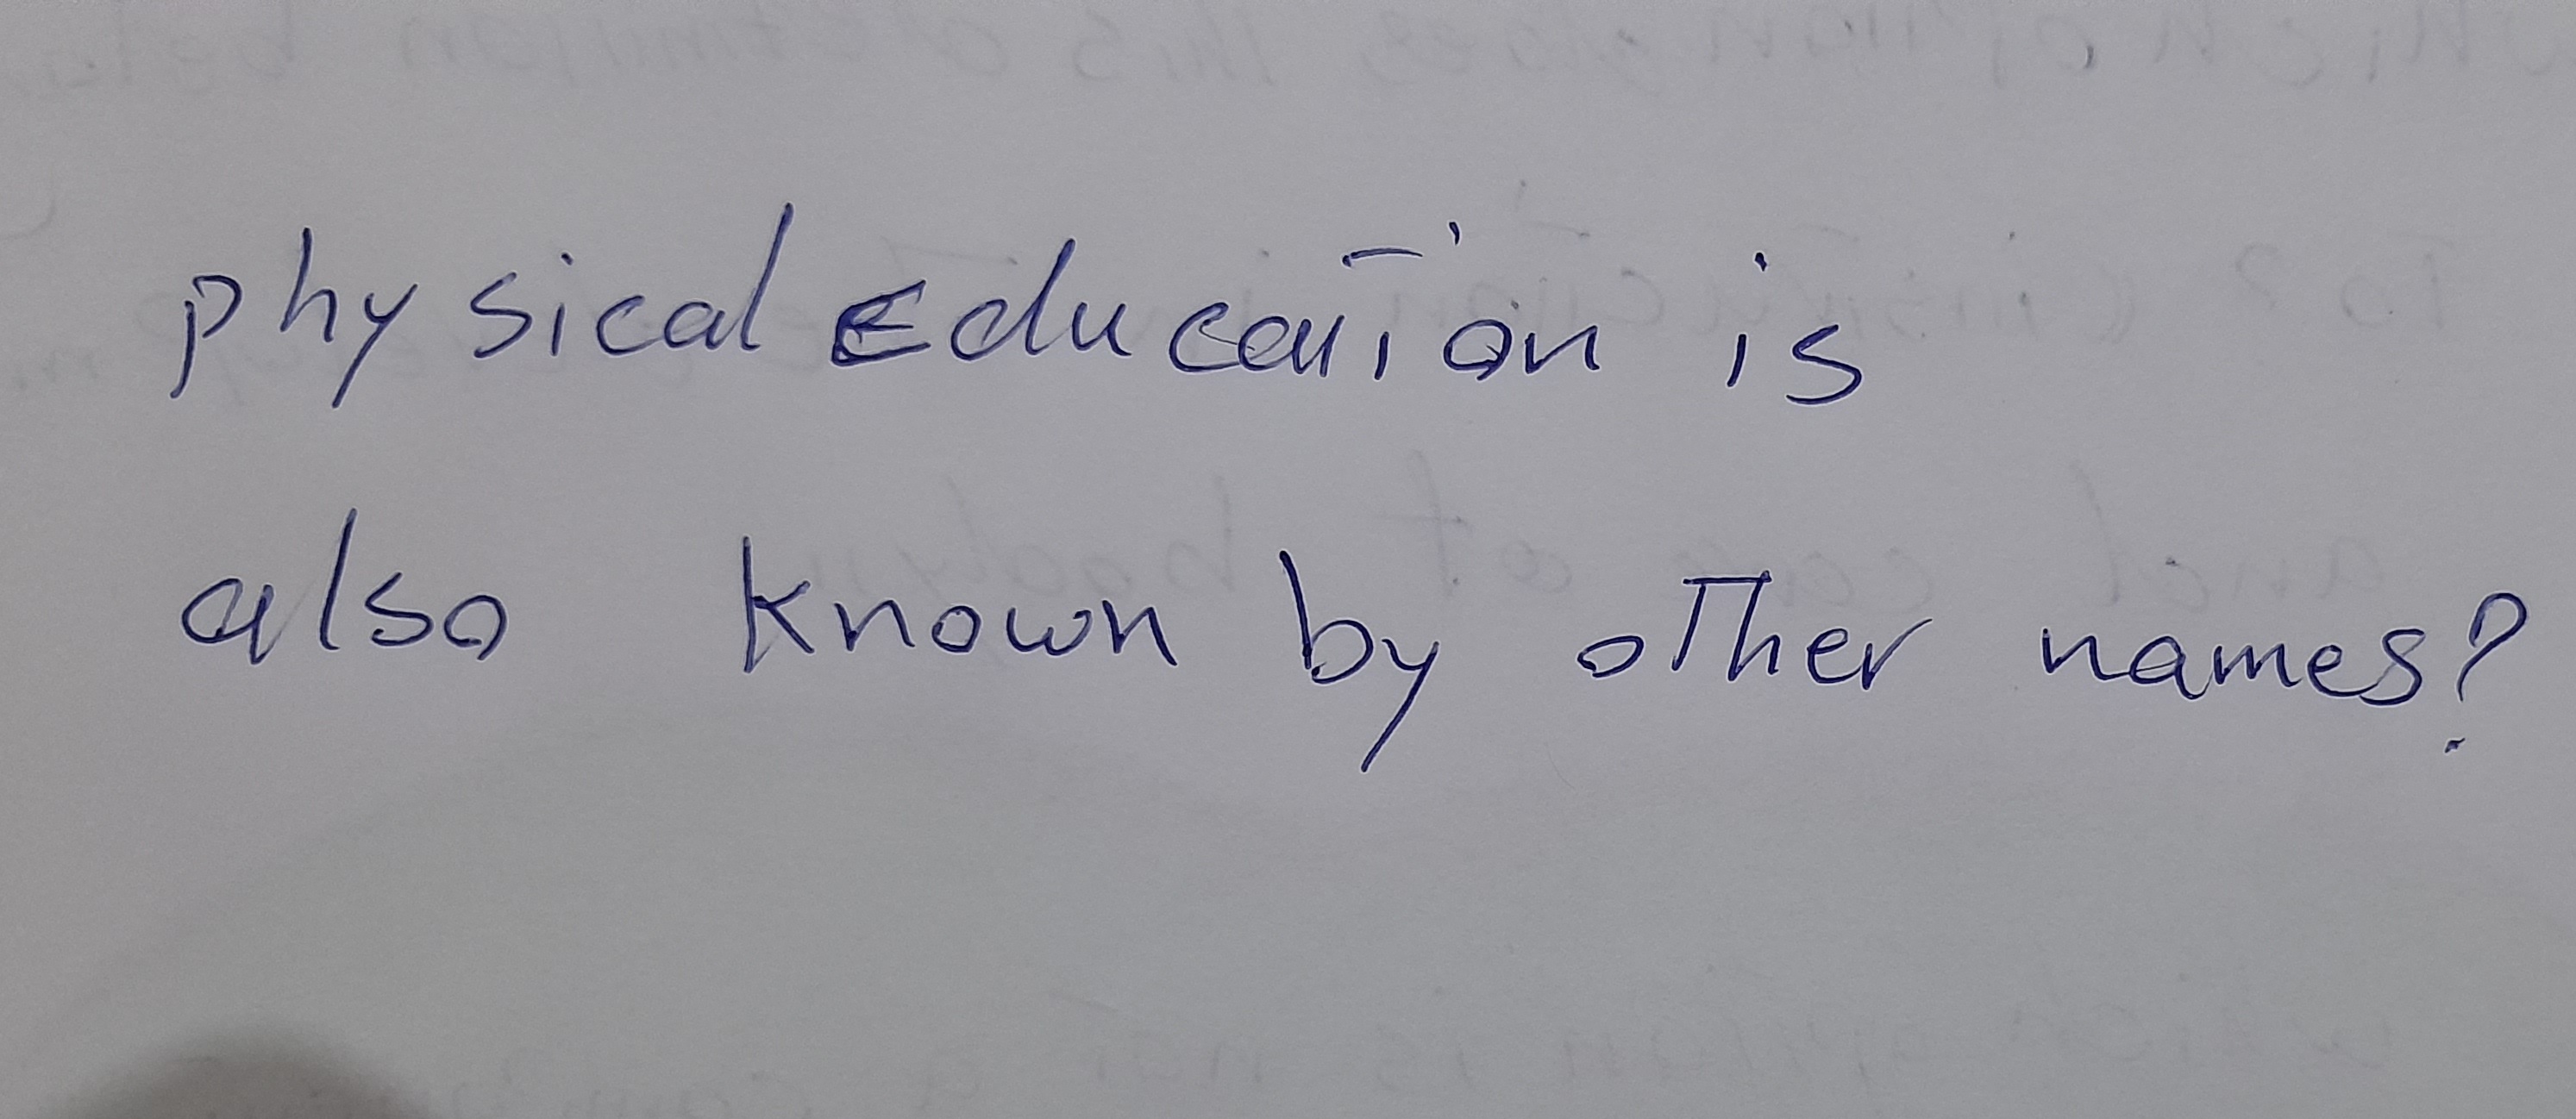 physical Education is
also known by other names?